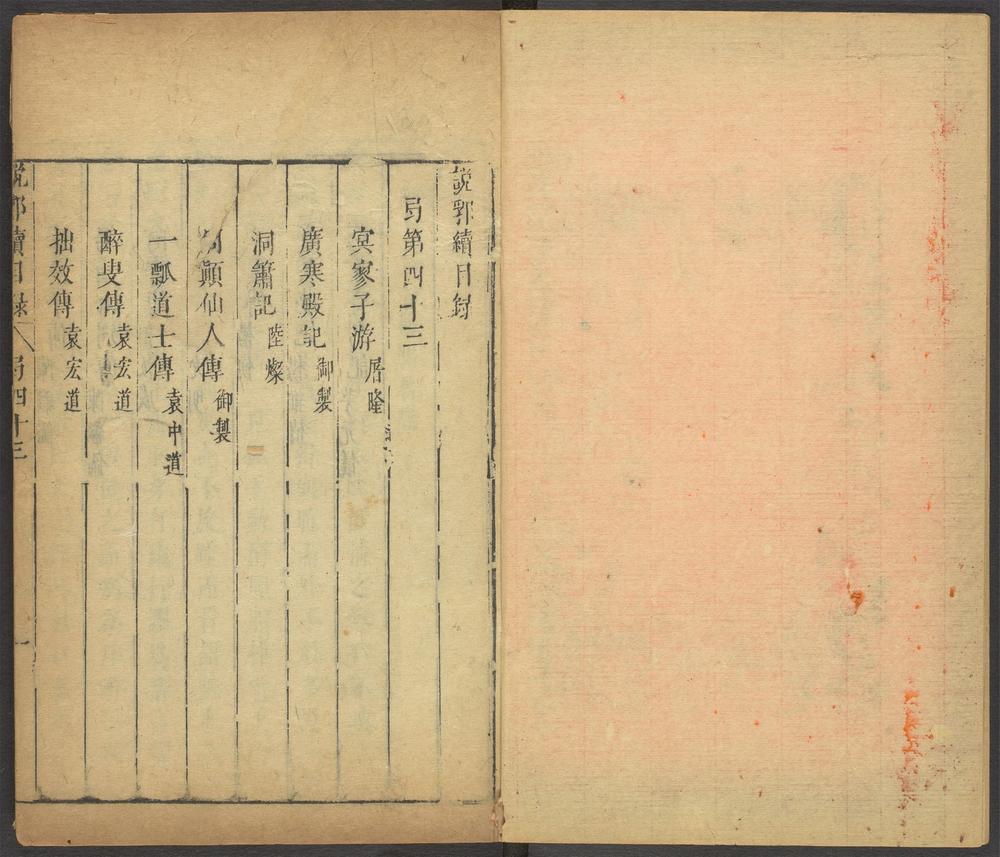 説郛續目錄
号第四十三
冥寥子游 屠隆
廣寒殿記 御製
洞簫記 陸燦
顛仙人傳 御製
一瓢道士傳 袁中道
醉叟傳 袁宏道
拙效傳 袁宏道
説郛續目錄 号四十三 一